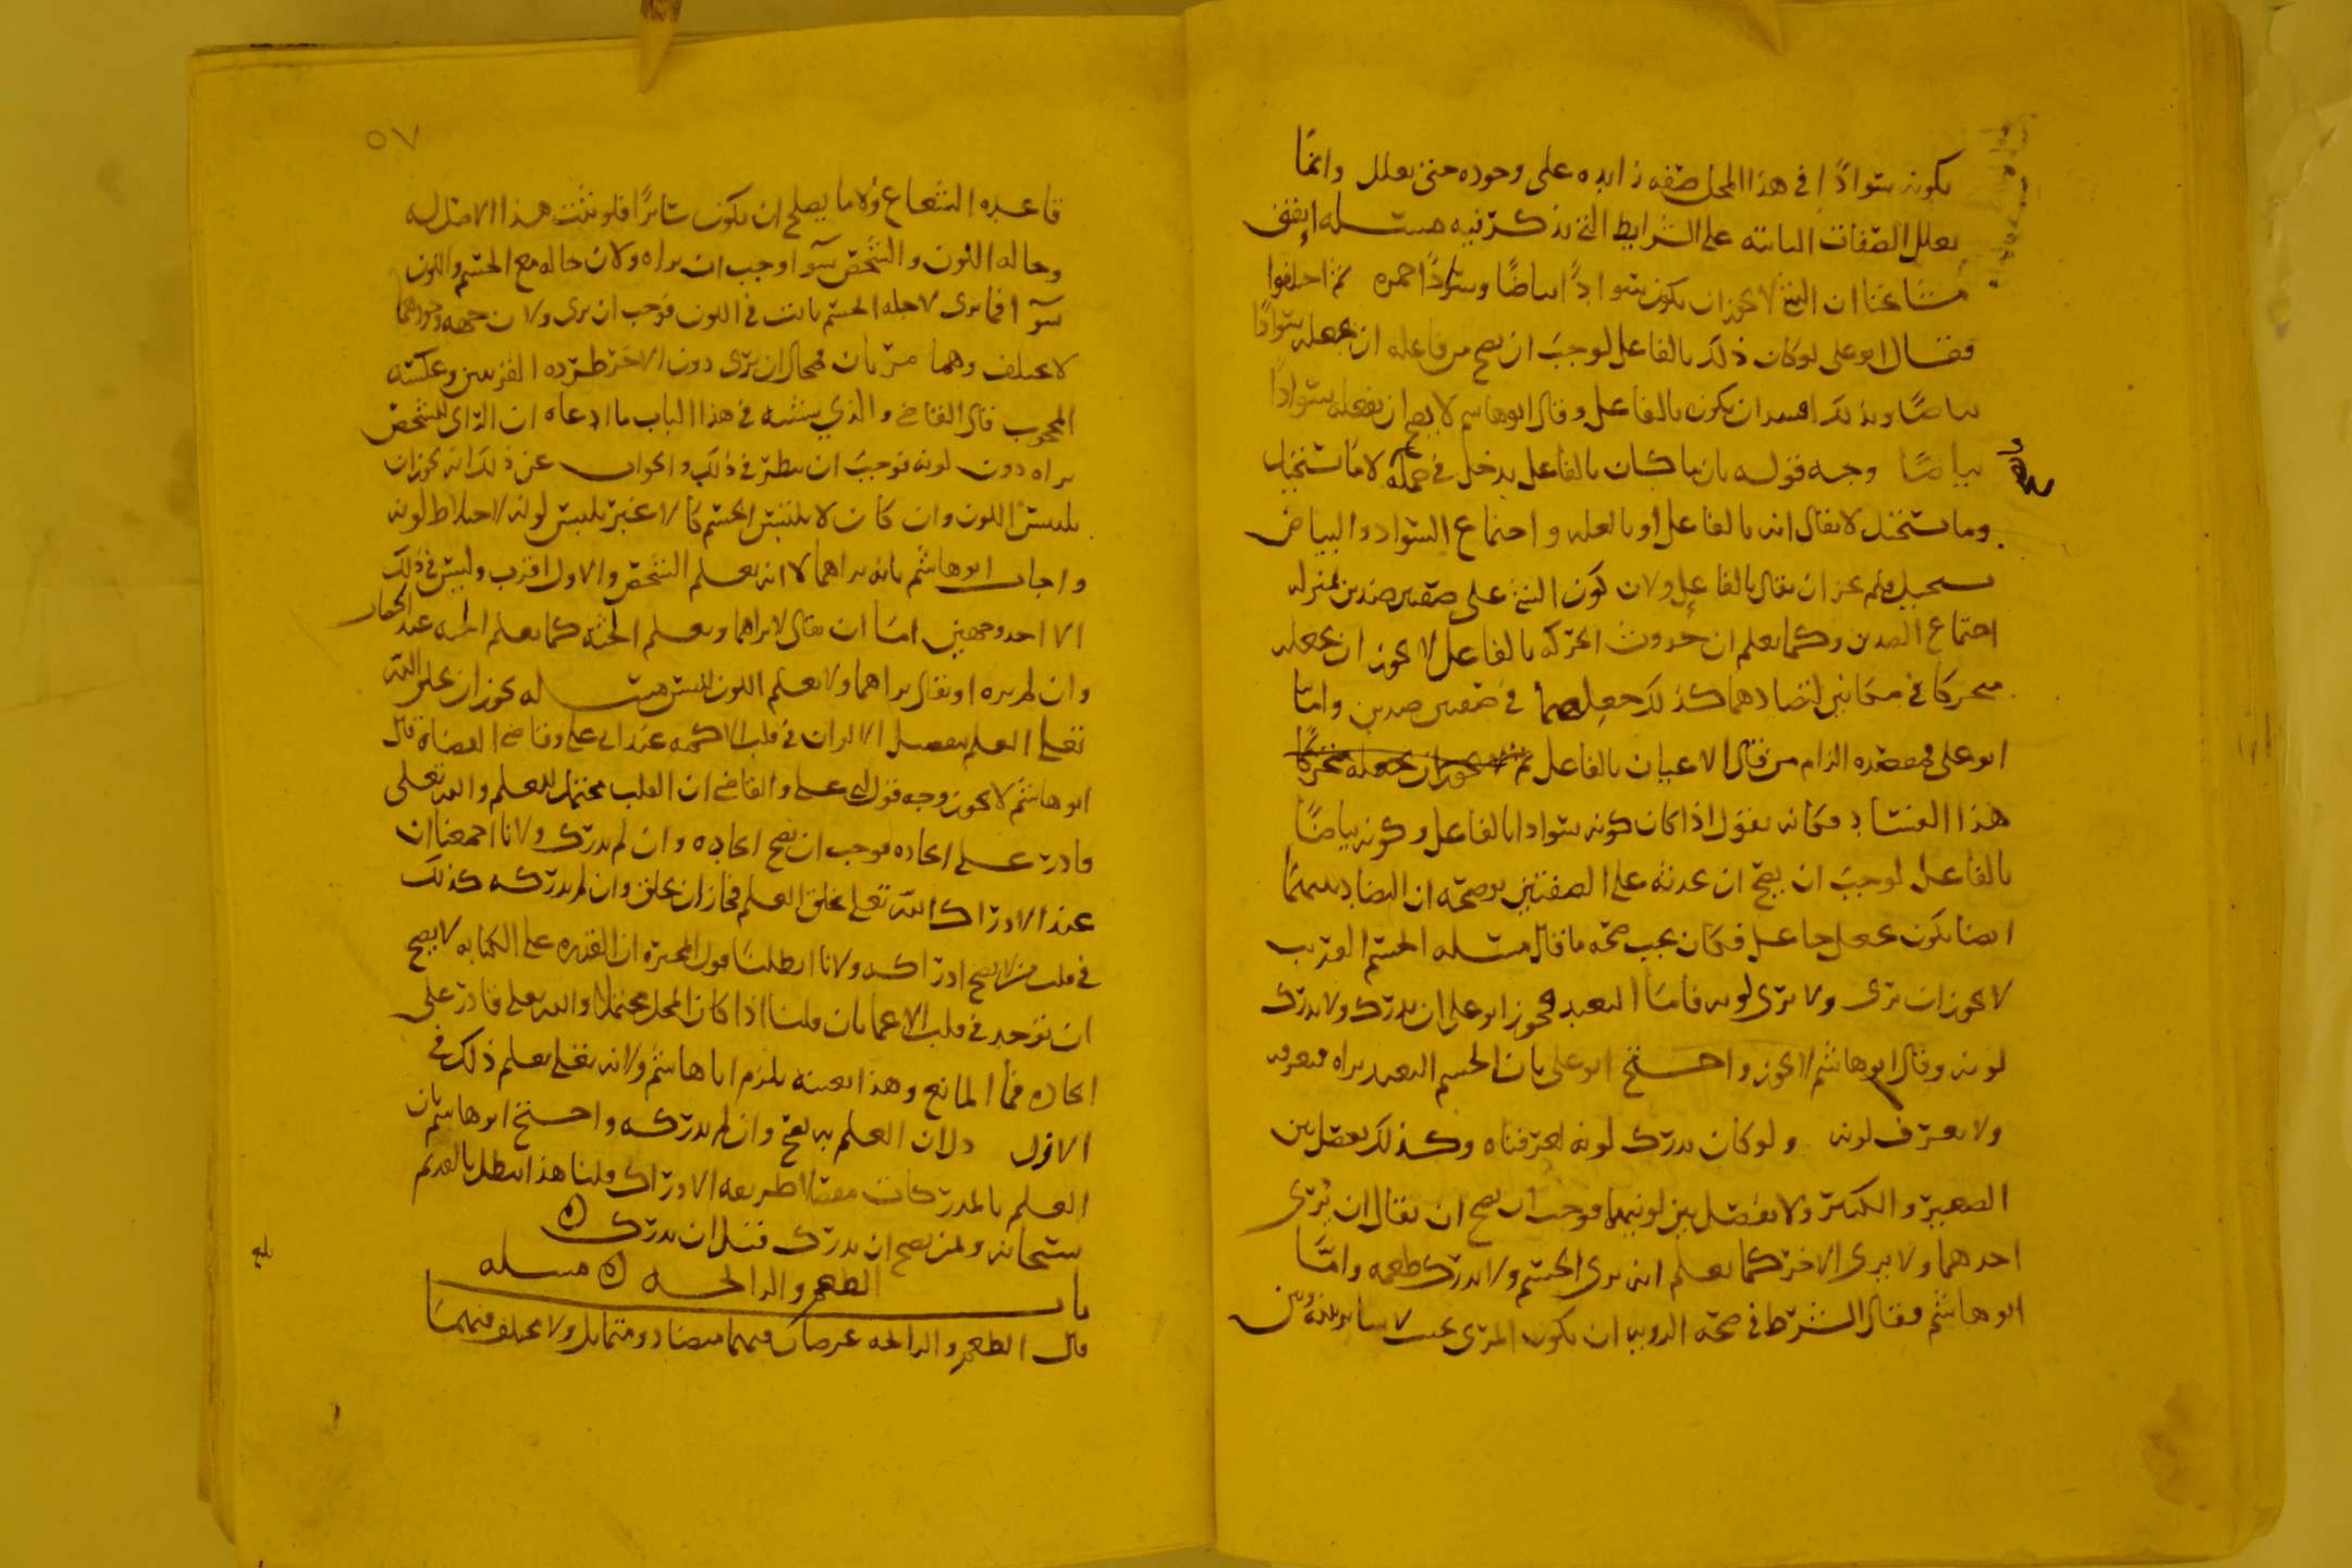 بكونه سوادًا في هذا المحل صفه زايده على وجوده حتى يعلل وانما
يعلل الصفات الثابته على الشرايط التي نذكر فيه مسئله اتفق
مشايخنا ان الشي لا يجوز ان يكون سوادًا بياضًا وسوادًا حمره ثم اختلفوا
فقال ابو علي لو كان ذلك بالفاعل لوجب ان يصح من فاعله ان يجعله سوادًا
بياضًا وبذلك افسد ان يكون بالفاعل وقال ابو هاشم لا يصح ان يفعله سوادًا
بياضًا وجه قوله بان ما كان بالفاعل يدخل في جملة لا ما استحيل
وما يستحيل لا يقال انه بالفاعل او بالعله واجتماع السواد والبياض
يستحيل فلم يجز ان يقال بالفاعل ولان كون الشي على صفتين ضدين بمنزله
اجتماع الضدين وكما يعلم ان حدوث الحركه بالفاعل لا يجوز ان يجعله
متحركا في مكانين لتضادهما كذلك جعله في صفتين ضدين واما
ابو علي فمقصده الزام من قال الاعيان بالفاعل
هذا الفساد فكانه يقول اذا كان كونه سوادا بالفاعل وكونه بياضًا
بالفاعل لوجب ان يصح ان يحدثه على الصفتين يوضحه ان التضاد بينهما
ايضا يكون بجعل جاعل فكان يجب صحه ما قال مسئله الجسم القريب
لا يجوز ان يرى ولا يرى لونه فاما البعيد فجوز ابو علي ان يدرك ولا يدرك
لونه وقال ابو هاشم لا يجوز واحتج ابو علي بان الجسم البعيد يراه فيعرفه
ولا يعرف لونه ولو كان يدرك لونه لعرفناه وكذلك يفصل بين
الصغير والكبير ولا يفصل بين لونيهما فوجب ان يصح ان يقال ان يرى
احدهما ولا يرى الاخر كما يعلم انه يرى الجسم ولا يدرك طعمه واما
ابو هاشم فقال الشرط في صحه الرويه ان يكون المرى بحيث لا ساتر بينه وبين
٥٧
قاعده الشعاع ولا ما يصلح ان يكون ساترًا فلو ثبت هذا الامثل له
وحاله اللون والشخص سوآ وجب ان يراه ولان حاله مع الجسم واللون
سوآ فما يرى لاجله الجسم ثابت في اللون فوجب ان يرى ولان جهه وجودهما
لا يختلف وهما مريان فمحال ان يرى دون الاخر طرده القريبين وعكسه
المحجوب قال القاضي والذي يشبه في هذا الباب ما ادعاه ان الراى للشخص
يراه دون لونه فوجب ان ينظر في ذلك والجواب عن ذلك انه يجوز ان
يلتبس اللون وان كان لا يلتبس الجسم كالاغبر يلتبس لونه لاختلاط لونه
واجاب ابو هاشم بانه يراهما لا انه يعلم الشخص والاول اقرب وليس في ذلك
الا احد وجهين اما ان يقال لا يراهما ويعلم الجثه كما يعلم الجنه عند الكفار
وان لم يره او يقال يراهما ولا يعلم اللون للبس مسئله يجوز ان يخلق الله
تعلى العلم بتفصيل الالوان في قلب الاكمه عند ابي علي وقاضي القضاة قال
ابو هاشم لا يجوز وجه قول ابي علي والقاضي ان القلب محتمل للعلم والله تعلى
قادر على ايجاده فوجب ان يصح ايجاده وان لم يدرك ولانا اجمعنا ان
عند الادراك الله تعلى يخلق العلم فجاز ان يخلق وان لم يدركه كذلك
في قلب من لا يصح ادراكه ولانا ابطلنا قول المجبره ان القدره على الكتابه لا يصح
ان توجد في قلب الاعما بان قلنا اذا كان المحل محتملا والله تعلى قادر على
ايجاده فما المانع وهذا بعينه يلزم ابا هاشم ولانه تعلى يعلم ذلك في
الاول ولان العلم به يقع وان لم يدركه واحتج ابو هاشم بان
العلم بالمدركات مفصلا طريقه الادراك قلنا هذا يبطل بالقديم
سبحانه ولمن يصح ان يدرك قبل ان يدرك
باب الطعم والرائحه مسئله
قال الطعم والرائحه عرضان فيهما متضاد ومتماثل ولا مختلف فيهما
بلغ